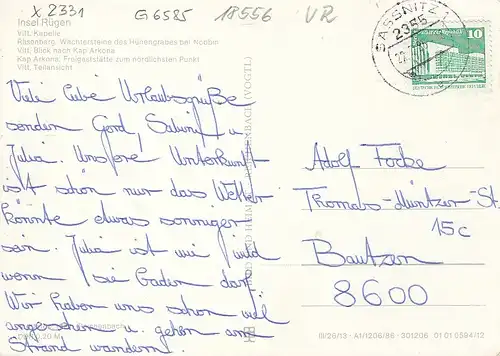 X 2331 G 6585 18556 VR
Insel Rügen
Vitt, Kapelle
Vitt, Blick nach Kap Arkona
Kap Arkona, Freigaststätte zum nördlichsten Punkt
Vitt, Teilansicht
SASSNITZ 1
2355
10
Viele liebe Urlaubsgrüße
senden Gerd, Sabine u.
Julia. Unsere Unterkunft
ist schön nur das Wetter
könnte etwas sonniger
sein. Julia ist wie wild
wenn sie baden darf.
Wir haben uns schon viel
angesehen u. gehen am
Strand wandern.
Adolf Focke
Thomas-Müntzer-St.
15c
Bautzen
8600
0,20 M
III/26/13 · A1/1206/86 · 301206 01 01 0594/12